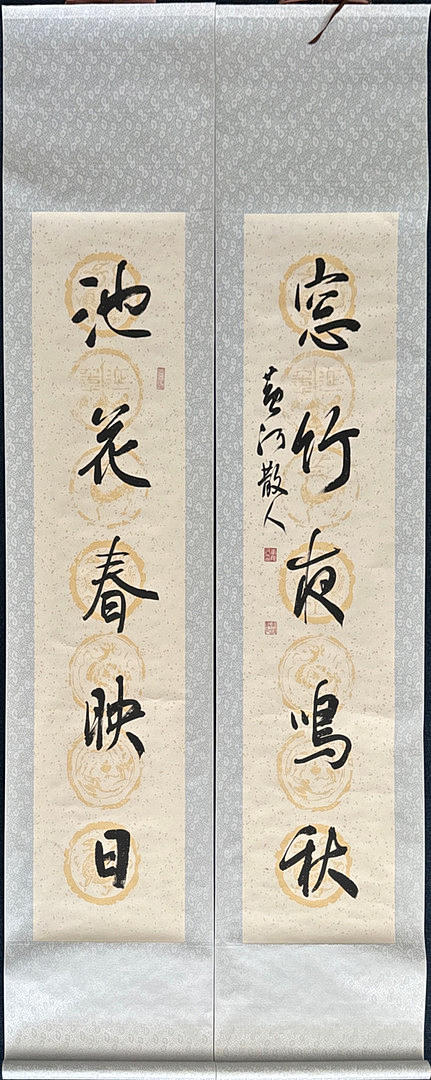 池花春映日
窓竹夜鳴秋
黄河散人